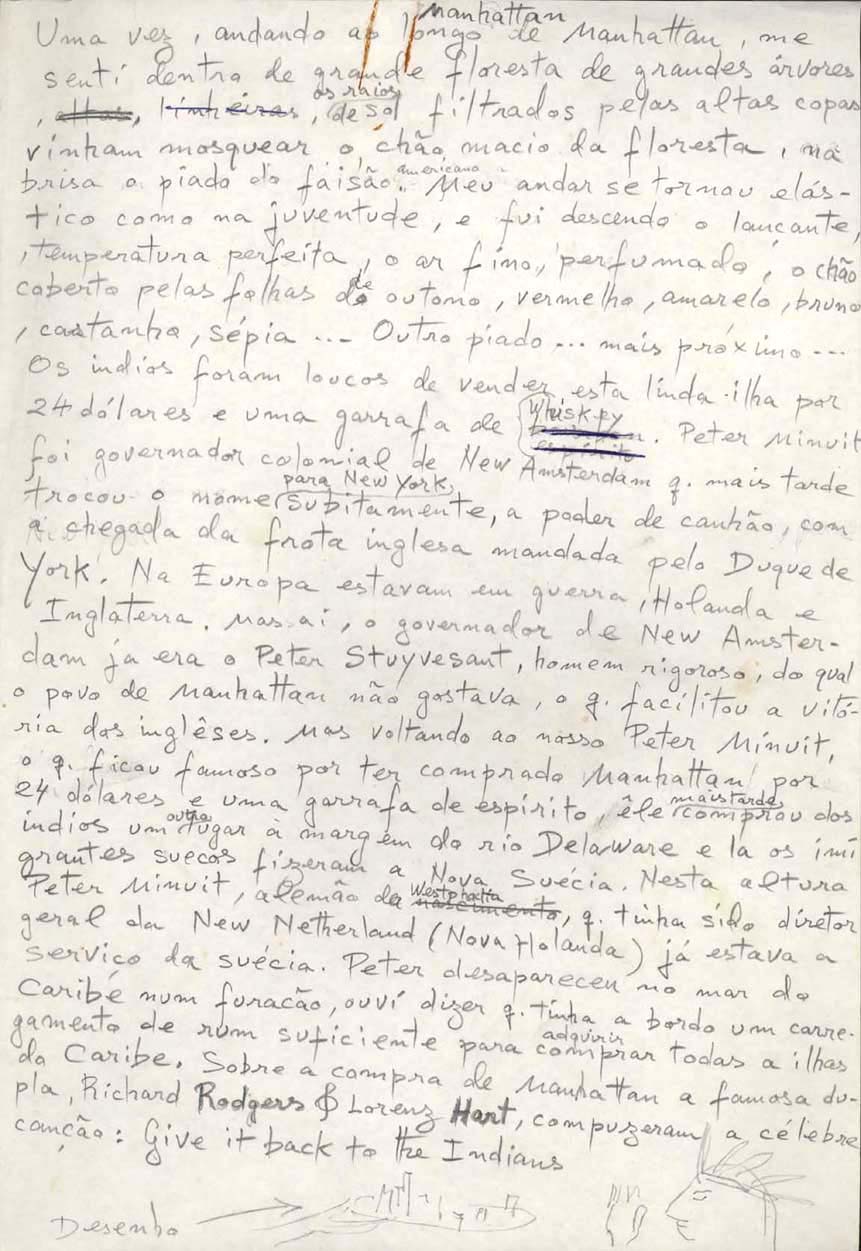 Manhattan
Uma vez, andando ao longo de Manhattan, me
sentí dentro de grande floresta de grandes árvores
, altas, linheiras, os raios de sol filtrados pelas altas copas
vinham mosquear o chão macio da floresta, na
brisa o piado do faisão americano. Meu andar se tornou elás-
tico como na juventude, e fui descendo o lançante,
, temperatura perfeita, o ar fino, perfumado, o chão
coberto pelas folhas de outono, vermelho, amarelo, bruno
, castanho, sépia ... Outro piado ... mais próximo ...
Os indios foram loucos de vender esta linda ilha por
24 dólares e uma garrafa de Whiskey espírito. Peter Minuit
foi governador colonial de New Amsterdam q. mais tarde
trocou o nome para New York, subitamente, a poder de canhão, com
a chegada da frota inglesa mandada pelo Duque de
York. Na Europa estavam em guerra, Holanda e
Inglaterra. Mas ai, o governador de New Amster-
dam ja era o Peter Stuyvesant, homem rigoroso, do qual
o povo de Manhattan não gostava, o q. facilitou a vitó-
ria dos inglêses. Mas voltando ao nosso Peter Minuit,
o q. ficou famoso por ter comprado Manhattan por
24 dólares e uma garrafa de espírito, êle mais tarde comprou dos
indios um outro lugar à margem do rio Delaware e la os imi
grantes suecos fizeram a Nova Suécia. Nesta altura
Peter Minuit, alemão de Westphalia nascimento, q. tinha sido diretor
geral da New Netherland (Nova Holanda) já estava a
serviço da suécia. Peter desapareceu no mar do
Caribé num furacão, ouví dizer q. tinha a bordo um carre-
gamento de rum suficiente para adquirir comprar todas a ilhas
do Caribe. Sobre a compra de Manhattan a famosa du-
pla, Richard Rodgers & Lorenz Hart, compuzeram a célebre
canção: Give it back to the Indians
Desenho